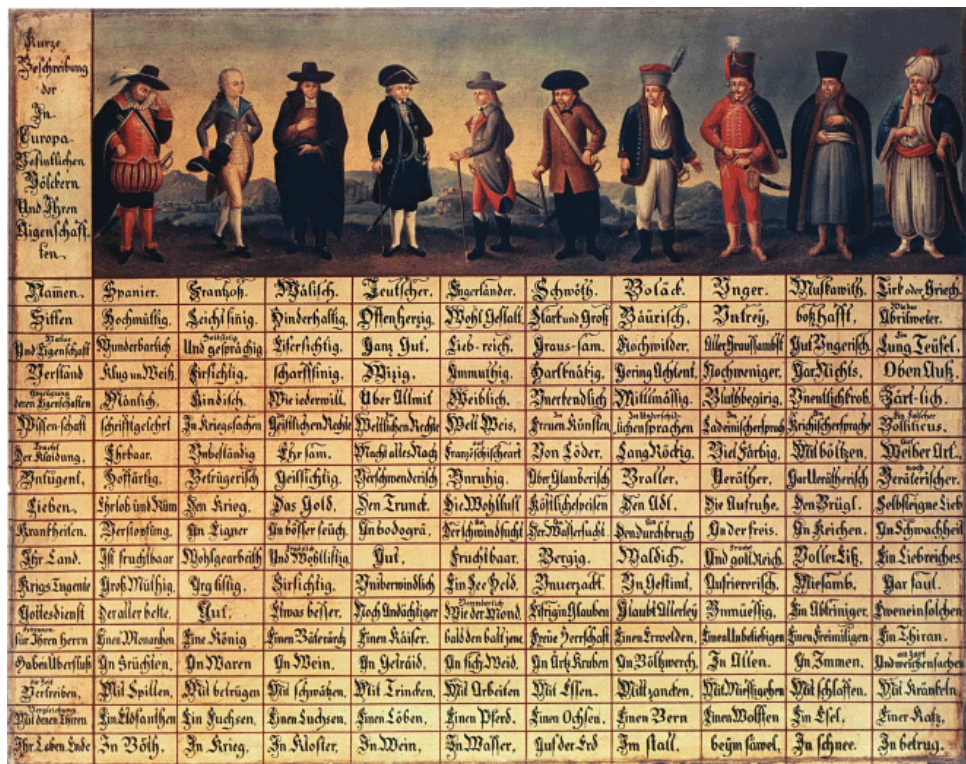 Kurze
Beschreibung
der
In
Europa
Befintlichen
Völckern
Und Ihren
Aigenschaff
ten.
Namen. Spanier. Frantzoß. Wälisch. Teutscher. Engerländer. Schwöth. Boläck. Unger. Muskawith. Tirk oder Griech.
Sitten Hochmüttig, Leicht sinig, Hinderhaltig, Offenherzig, Wohl Gestalt, Stark und Groß Bäurisch, Untrey, boßhafft, Wie das Abrilweter.
Natur Und Eigenschaft Wunderbarlich Und gesprächig Eifersichtig, Ganz Gut, Lieb-reich, Graus-sam, Nochwilder, Aller Graussambst Gut Ungerisch, Ein Lung Teüfel.
Verstand Klug un Weiß, Firsichtig, scharffsinig, Wizig, Ammuthig, Hartknätig, Gering Achtent, Nochweniger, Gar Nichts, Oben Auß,
deren Eigenschaften Mänlich, Kindisch, Wie iederwill, Über Allmit Weiblich, Unerkendlich Mittlmäsig, Bluthbegirig, Unentlichkrob, Zärt-lich.
Wissenschaft schrifftgelehrt In Kriegssachen Geistlichen Rechte Weltlichen Rechte Welt Weis, In Freuen Künsten In Underschid lichensprachen In Ladeinischersprach In Krichischersprache Ein Falscher Bolliticus.
Tracht Der Kleidung, Ehrbaar. Unbeständig Ehrsam. Macht alles Nach auf Französischeart Von Löder, Lang Röckig, Viel Färbig, Mit böltzen, Auf Weiber Art.,
Untugent, Hoffärtig, Betrügerisch Geilsichtig, Verschwenderisch Unruhig, Über Glauberisch Braller, Veräther, Gar Verätherisch noch Verätherischer.
Lieben, Ehrlob und Rüm Den Krieg, Das Gold, Den Trunck, Die Wohllust Köstlichespeisen Den Adl, Die Aufruhe, Den Brügl, Selbsteigne Lieb
Krankheiten. Verstopfung, An Eigner An bösser seüch, An bodogrä, Der schwindsucht Der Wassersucht Den durchbruch An der freis, An Keichen, An Schwachheit
Ihr Land. Ist fruchtbaar Wohlgearbeith Und Wohllistig Gut, Fruchtbaar, Bergig, Waldich, Und goltReich, Voller Eiß, Ein Liebreiches
Krigs Tugente Groß Müthig, Arg listig, Firsichtig, Unüberwindlich Ein See Held, Unverzackt, Un Gestimt, Aufriererisch, Miesamb, Gar faul,
Gottesdienst Der aller beste, Gut, Etwas besser, Noch Andächtiger Wie der Mond, Eifrig in Glauben Glaubt Allerley Unmüessig, Ein Abtriniger, Eweneinsolchen
für Ihren Herrn Einen Monarchen Eine König Einen Bäterärch Einen Käiser, bald den bald jene Freüe Herrschaft Einen Erwelden, Einen Unbeliebigen Einen Freimiligen Ein Thiran.
Haben Überfluß An Früchten, An Waren An Wein, An Getraid, An fich Weid, An Ärtz Kruben An Böltzwerch, In Allen, In Immen, Und weichen sachen
die Zeit Vertreiben, Mit Spillen, Mit betrügen Mit schwätzen, Mit Trincken, Mit Arbeiten Mit Essen, Mit zancken, Mit Miessigehen Mit schlaffen, Mit Kränkeln,
Vergleichung Mit denen Thiren Ein Elöfanthen Ein Fuchsen, Einen Luchsen, Einen Löben, Einen Pferd, Einen Ochsen, Einen Bern Einen Wolffen Ein Esel, Einer Katz,
Ihr Leben Ende In Böth, In Krieg, In Kloster, In Wein, In Wasser, Auf der Erd Im stall, beym sawel, In schnee, In betrug.